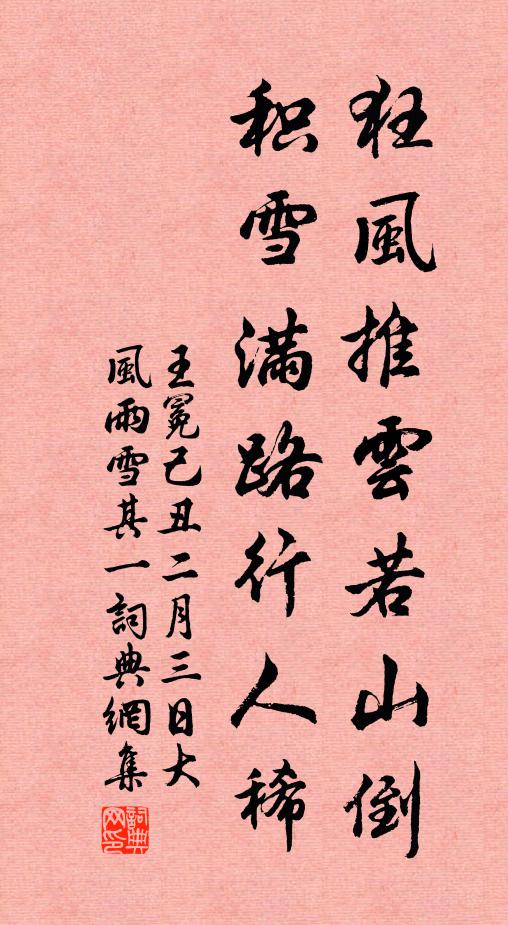 狂風推雲若山倒
积雪滿路行人稀
王冕己丑二月三日大
風雨雪其一詞典網集
詞典
网印